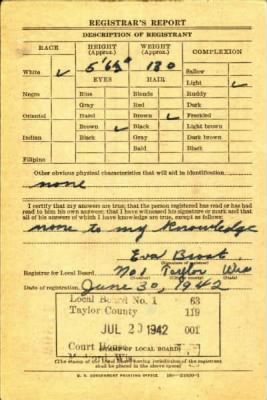 REGISTRAR'S REPORT
DESCRIPTION OF REGISTRANT
RACE HEIGHT (Approx.) WEIGHT (Approx.) COMPLEXION
White ✓ 5' 6½" 130 Sallow
EYES HAIR Light ✓
Negro Blue Blonde Ruddy
Gray Red Dark
Oriental Hazel Brown ✓ Freckled
Brown ✓ Black Light brown
Indian Black Gray Dark brown
Bald Black
Filipino
Other obvious physical characteristics that will aid in identification
none
I certify that my answers are true; that the person registered has read or has had
read to him his own answers; that I have witnessed his signature or mark and that
all of his answers of which I have knowledge are true, except as follows:
none to my knowledge
Eva
(Signature of registrar)
Registrar for Local Board No 1 Taylor Wis
Date of registration June 30, 1942
Local Board No. 1 63
Taylor County 119
JUL 23 1942 001
Court House
Medford, Wis.
(STAMP OF LOCAL BOARD)
(The stamp of the Local Board having jurisdiction of the registrant
shall be placed in the above space)
U. S. GOVERNMENT PRINTING OFFICE